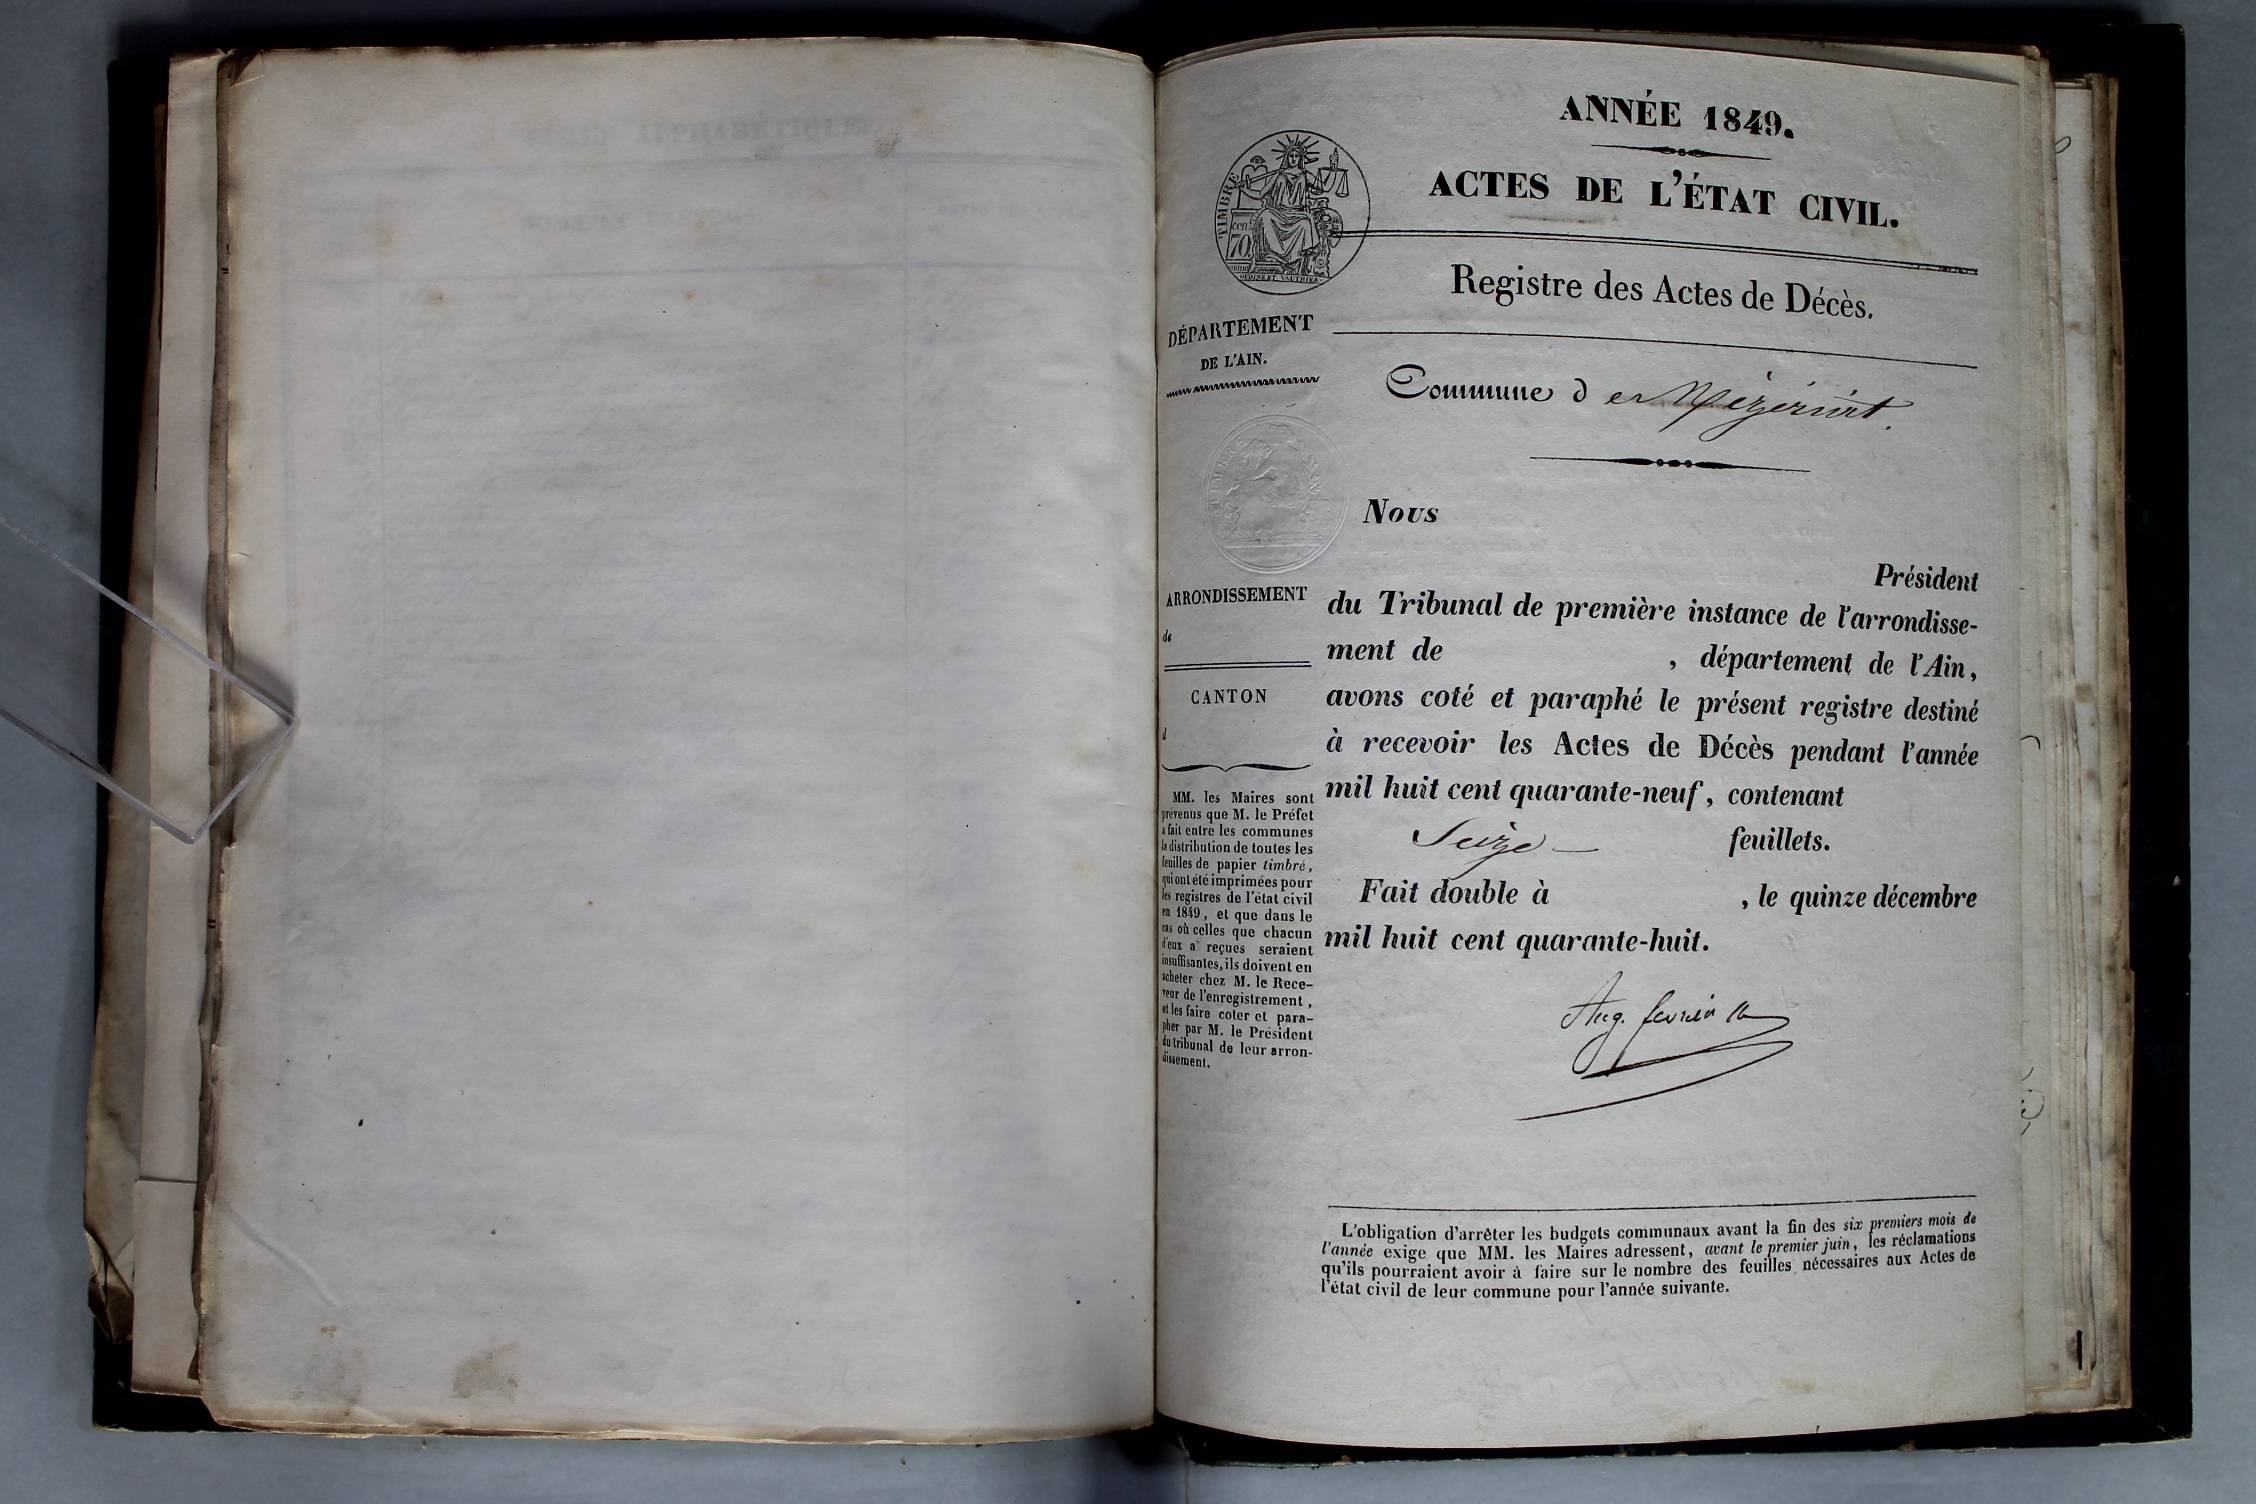 ANNÉE 1849.
ACTES DE L'ÉTAT CIVIL.
TIMBRE
cen.
70.
OUDINE ET VAUTHIER
Registre des Actes de Décès.
DÉPARTEMENT
DE L'AIN.
Commune de Mézériat.
Nous
Président
du Tribunal de première instance de l'arrondisse-
ment de , département de l'Ain,
avons coté et paraphé le présent registre destiné
à recevoir les Actes de Décès pendant l'année
mil huit cent quarante-neuf, contenant
Seize — feuillets.
Fait double à , le quinze décembre
mil huit cent quarante-huit.
Aug.
ARRONDISSEMENT
de
CANTON
d
MM. les Maires sont
prévenus que M. le Préfet
a fait entre les communes
la distribution de toutes les
feuilles de papier timbré,
qui ont été imprimées pour
les registres de l'état civil
en 1849, et que dans le
cas où celles que chacun
d'eux a reçues seraient
insuffisantes, ils doivent en
acheter chez M. le Rece-
veur de l'enregistrement,
et les faire coter et para-
pher par M. le Président
du tribunal de leur arron-
dissement.
L'obligation d'arrêter les budgets communaux avant la fin des six premiers mois de
l'année exige que MM. les Maires adressent, avant le premier juin, les réclamations
qu'ils pourraient avoir à faire sur le nombre des feuilles nécessaires aux Actes de
l'état civil de leur commune pour l'année suivante.